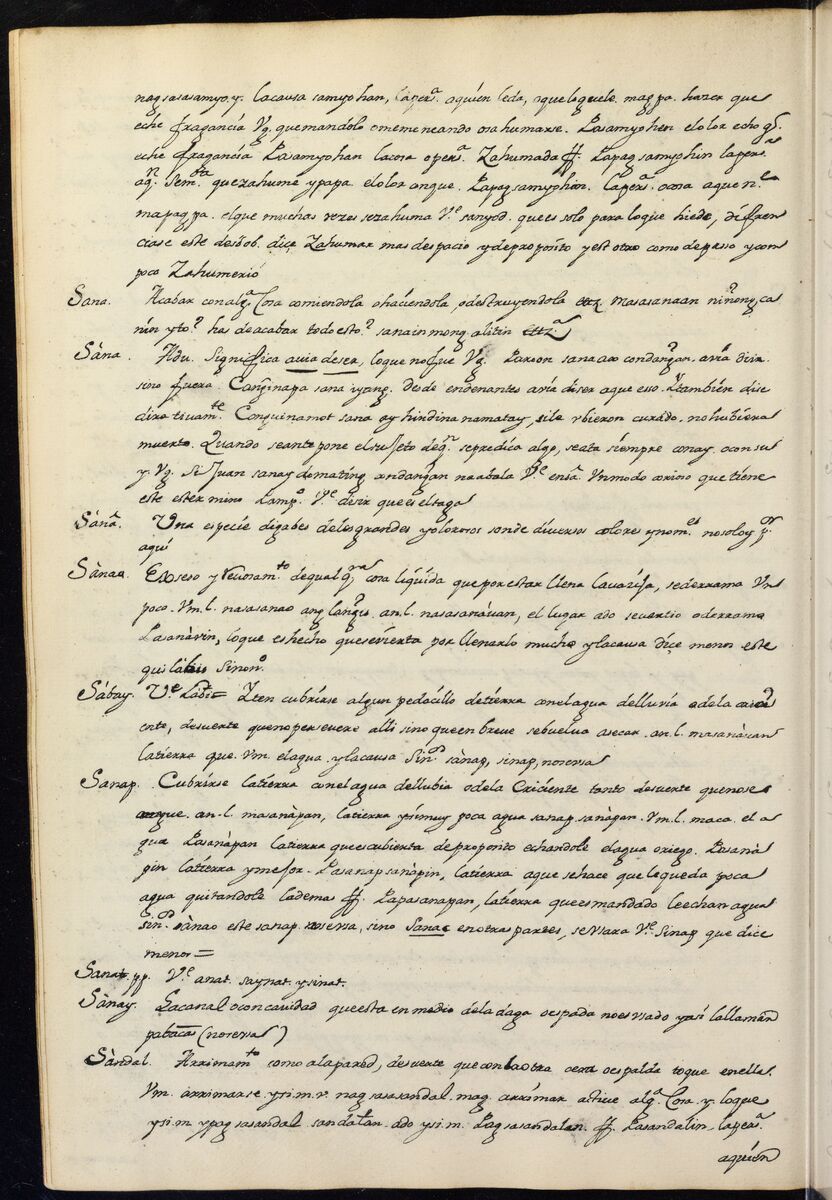 nagsasamyo, y. lacausa samyohan, laperª. aquien leda, oquelequele. magpa. hazer que
eche fragancia Vg. quemandolo omemeneando osahumarse. Pasamyohen elolor echo qº.
eche fragancia Pasamyohan lacosa operª. Zahumada ff. Papagsamyohin laperª.
aqⁿ. Sem.ᵗᵃ quezahume ypapa elolor anque. Papagsamyohin. laperª. ocosa aque nˡᵃ
mapagpa. elque muchas vezes sezahuma Vᵉ sanyod. quees solo paraloque hiede, difren
ciase este desob. dice Zahumar mas despacio ydeproposito yestotro como depasso ycon
poco Zahumerio
Sana. Acabar con algª. Cosa comiendola ohaciendola, odestruyendola masasanaan niñong, ca
nin yto? has deacabar todo esto? sanain mong alitin ettzª
Sàna. Adv. Significa avia deser, loque nofue Vg. Paroon sana aco condangan. aria dir
sino fuera. Canginapa sana iyang. desde endenantes avia deser aque esso. Ytambién dise
dira tivamᵗᵉ. Conguinamot sana ay hindina namatay, sile vbieron curado. nohubiera
muerto. Quando seante pone elsujeto deqª. sepredica algo, seata siempre conay. oconsu
y Vg. Si Juan sanay domating condangan naabala Vᵉ enia. Vnmodo curioso que tiene
este estermino Pampº. Vᵉ desir quees eltaga
Sànâ. Una especie digabes delosgrandes yolorosos sonde diversos colores ynomᵉˢ. nosoloy pᵒʳ
aqui
Sànao. Exseso y Revosamᵗᵒ. dequal qʳᵃ cosa liquida que por estar llena lavasija, sederrama Vn
poco. Vm. l. nasasanao ang langis. an. l. nasasanàvan, el lugar ado severtio oderrama
Pasanàvin, loque eshecho quesevierta por llenarlo mucho ylacausa dice menos este
quis Sinonº.
Sábay. Vᵉ Iten cubrirse algun pedacillo detierra conelagua delluvia odela creci
ente, desuerte quenopersevere alli sino queen breve sebuelva asecar. an. l. masanàvan
latierra que. Vm. elagua ylacausa Sinº. sànap, sinap, noseusa
Sanap. Cubrirse latierra conelagua dellubia odela Criciente tanto desuerte quenose
an. l. masanàpan, latierra ysimuy poca agua sanap sanàpan. Vm. l. maca. el a
gua Pasanàpan latierra queescubierta deproposito echandole elagua oriego. Pasanà
pin latierra ymejor. Pasanapsanàpin, latierra aque sehace que lequeda poca
agua quitandole lademas ff. Papasanapan, latierra queesmandado leechan agua
Sinº. sànao este sanap noseusa, sino Sanao enotraspartes, sevsara Vᵉ Sinap que dice
menos=
Sanat. pp. Vᵉ anat. saynat. ysinat.
Sànay. Lacanal oconcavidad queesta en medio dela daga oespada noesvsado yasi lallaman
pabacas (noseusa)
Sàndal. Arrimamᵗᵒ como alapared, desuerte que conlaotra cera oespalda toque enella.
Vm. arrimarse ysim. v. nagsasandal. mag. arrimar active algª. Cosa. y. loque
ysi. m. ypagsasandal sandalan. ado ysi. m. Pagsasandalan. ff. Pasandalin, laperª.
aquien